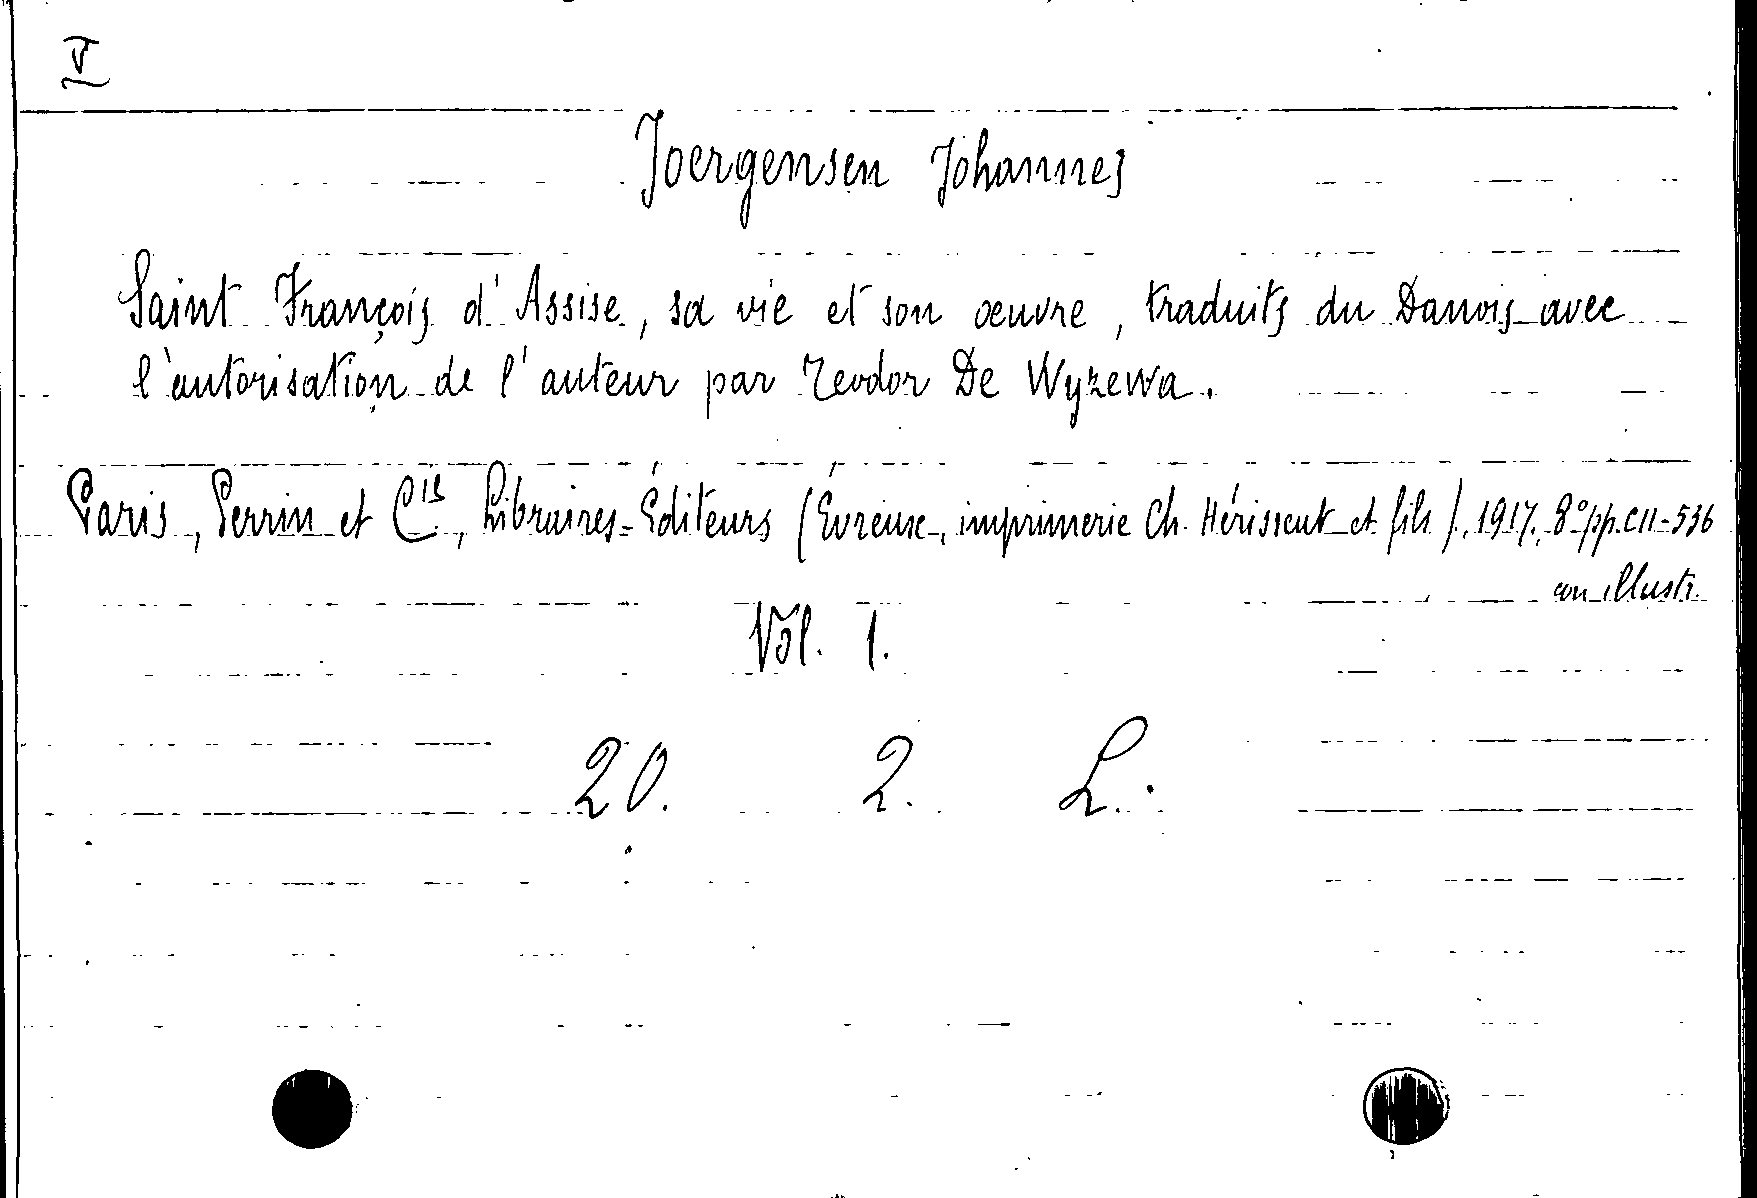 V
Joergensen Johannes
Saint François d'Assise, sa vie et son œuvre, traduits du Danois avec
l'autorisation de l'auteur par Teodor De Wyzewa.
Paris, Perrin et Cie, Libraires-Éditeurs (Évreux, imprimerie Ch. Hérissent et fils). 1917. 8° pp. CII-536
con illustr.
Vol. 1.
20. 2. L.